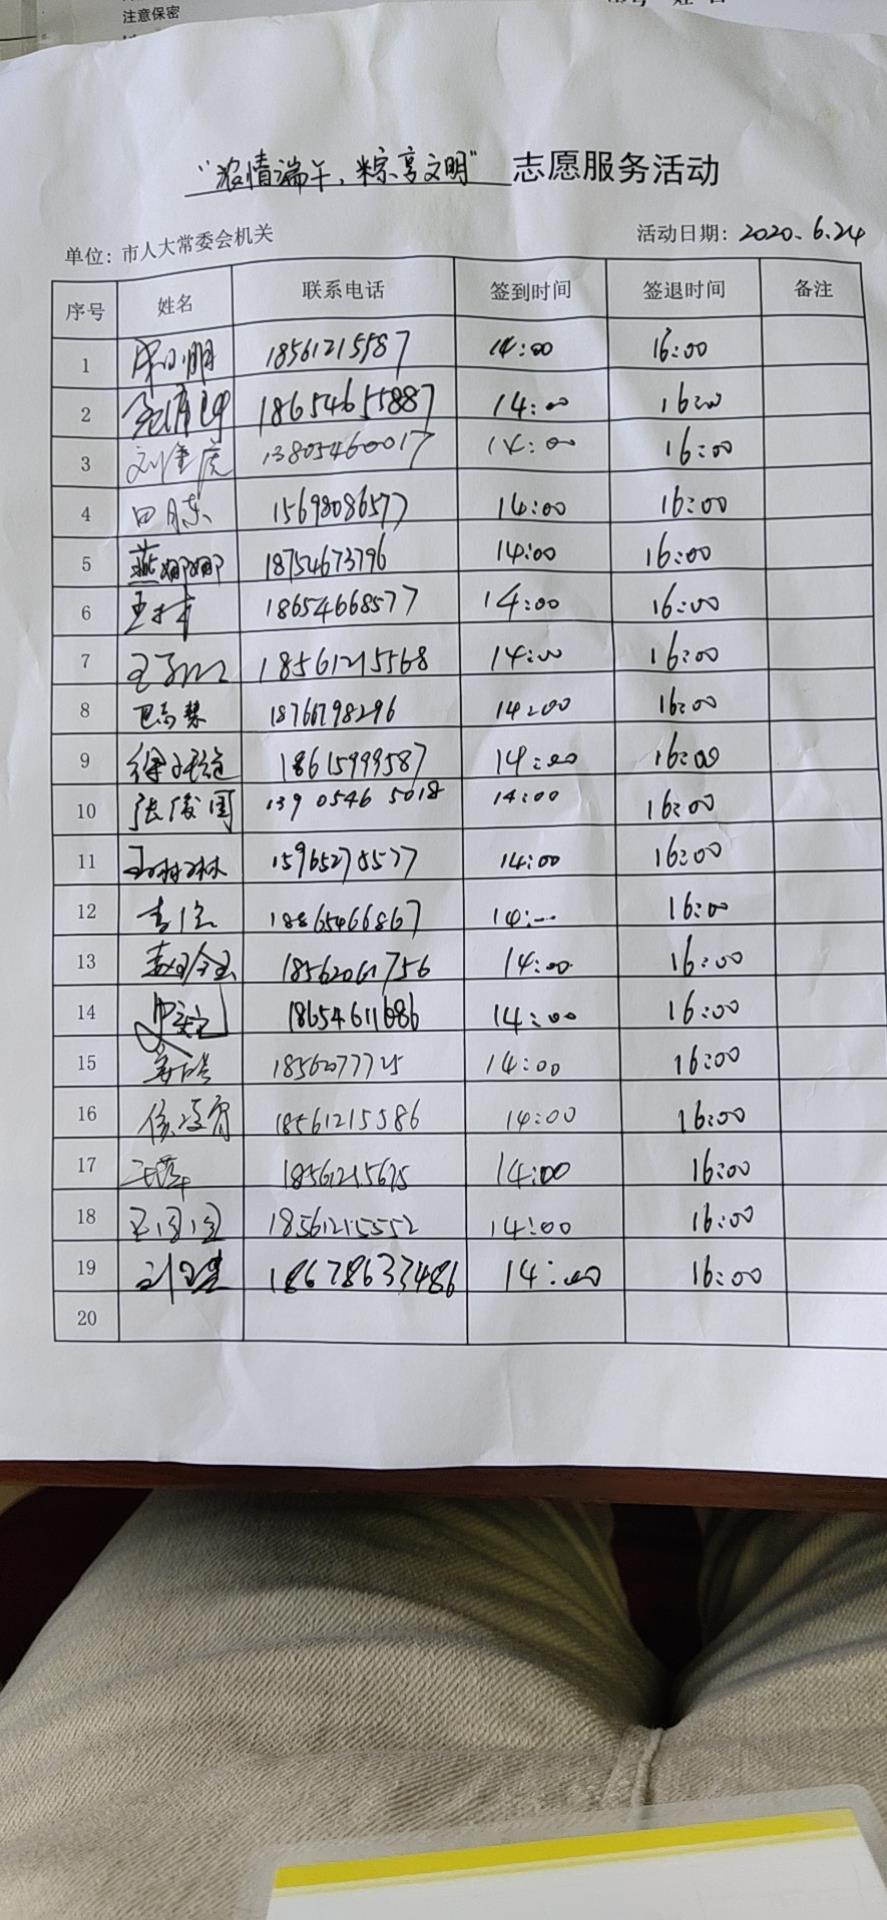 注意保密
"浓情端午、粽享文明" 志愿服务活动
单位: 市人大常委会机关 活动日期: 2020.6.24
序号 姓名 联系电话 签到时间 签退时间 备注
1 18561215587 14:00 16:00
2 18654655887 14:00 16:00
3 刘金虎 13805460017 14:00 16:00
4 田胜东 15698086577 14:00 16:00
5 燕娜娜 18754673796 14:00 16:00
6 18654668577 14:00 16:00
7 18561215568 14:00 16:00
8 18766798296 14:00 16:00
9 18615999587 14:00 16:00
10 张俊国 139 0546 5018 14:00 16:00
11 王琳琳 15965275577 14:00 16:00
12 18865466867 14:00 16:00
13 18562061756 14:00 16:00
14 18654611686 14:00 16:00
15 14:00 16:00
16 18561215586 14:00 16:00
17 王萍 18561215675 14:00 16:00
18 18561215552 14:00 16:00
19 18678633486 14:00 16:00
20